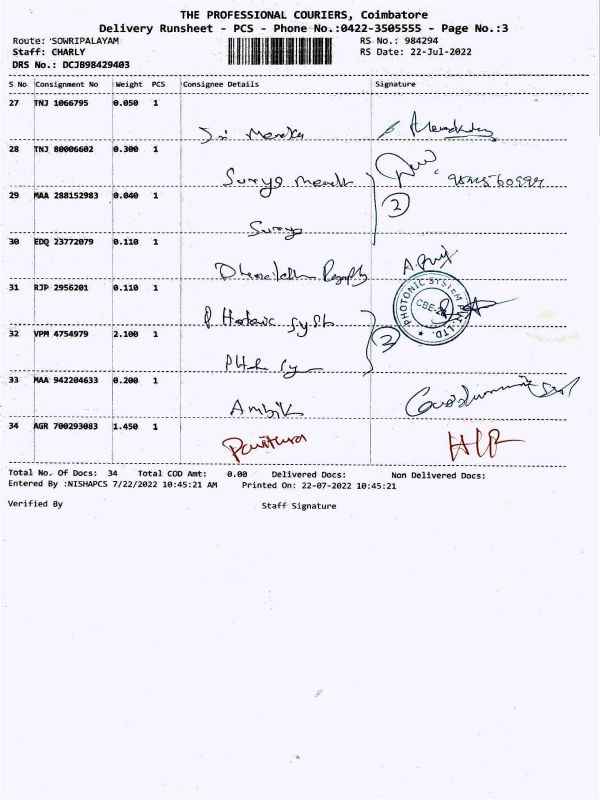 THE PROFESSIONAL COURIERS, Coimbatore
Delivery Runsheet - PCS - Phone No.:0422-3505555 - Page No.:3
Route: SOWRIPALAYAM RS No.: 984294
Staff: CHARLY RS Date: 22-Jul-2022
DRS No.: DCJB98429403
S No Consignment No Weight PCS Consignee Details Signature
27 TNJ 1066795 0.050 1
Sri Meneka
28 TNJ 80006602 0.300 1
Surya
29 MAA 288152983 0.040 1 2
Surya
30 EDQ 23772079 0.110 1
31 RJP 2956201 0.110 1
PHOTONIC SYSTEM PVT. LTD.
CBE-
32 VPM 4754979 2.100 1 2
33 MAA 942204633 0.200 1
Ambik
34 AGR 700293083 1.450 1
Total No. Of Docs: 34 Total COD Amt: 0.00 Delivered Docs: Non Delivered Docs:
Entered By :NISHAPCS 7/22/2022 10:45:21 AM Printed On: 22-07-2022 10:45:21
Verified By Staff Signature